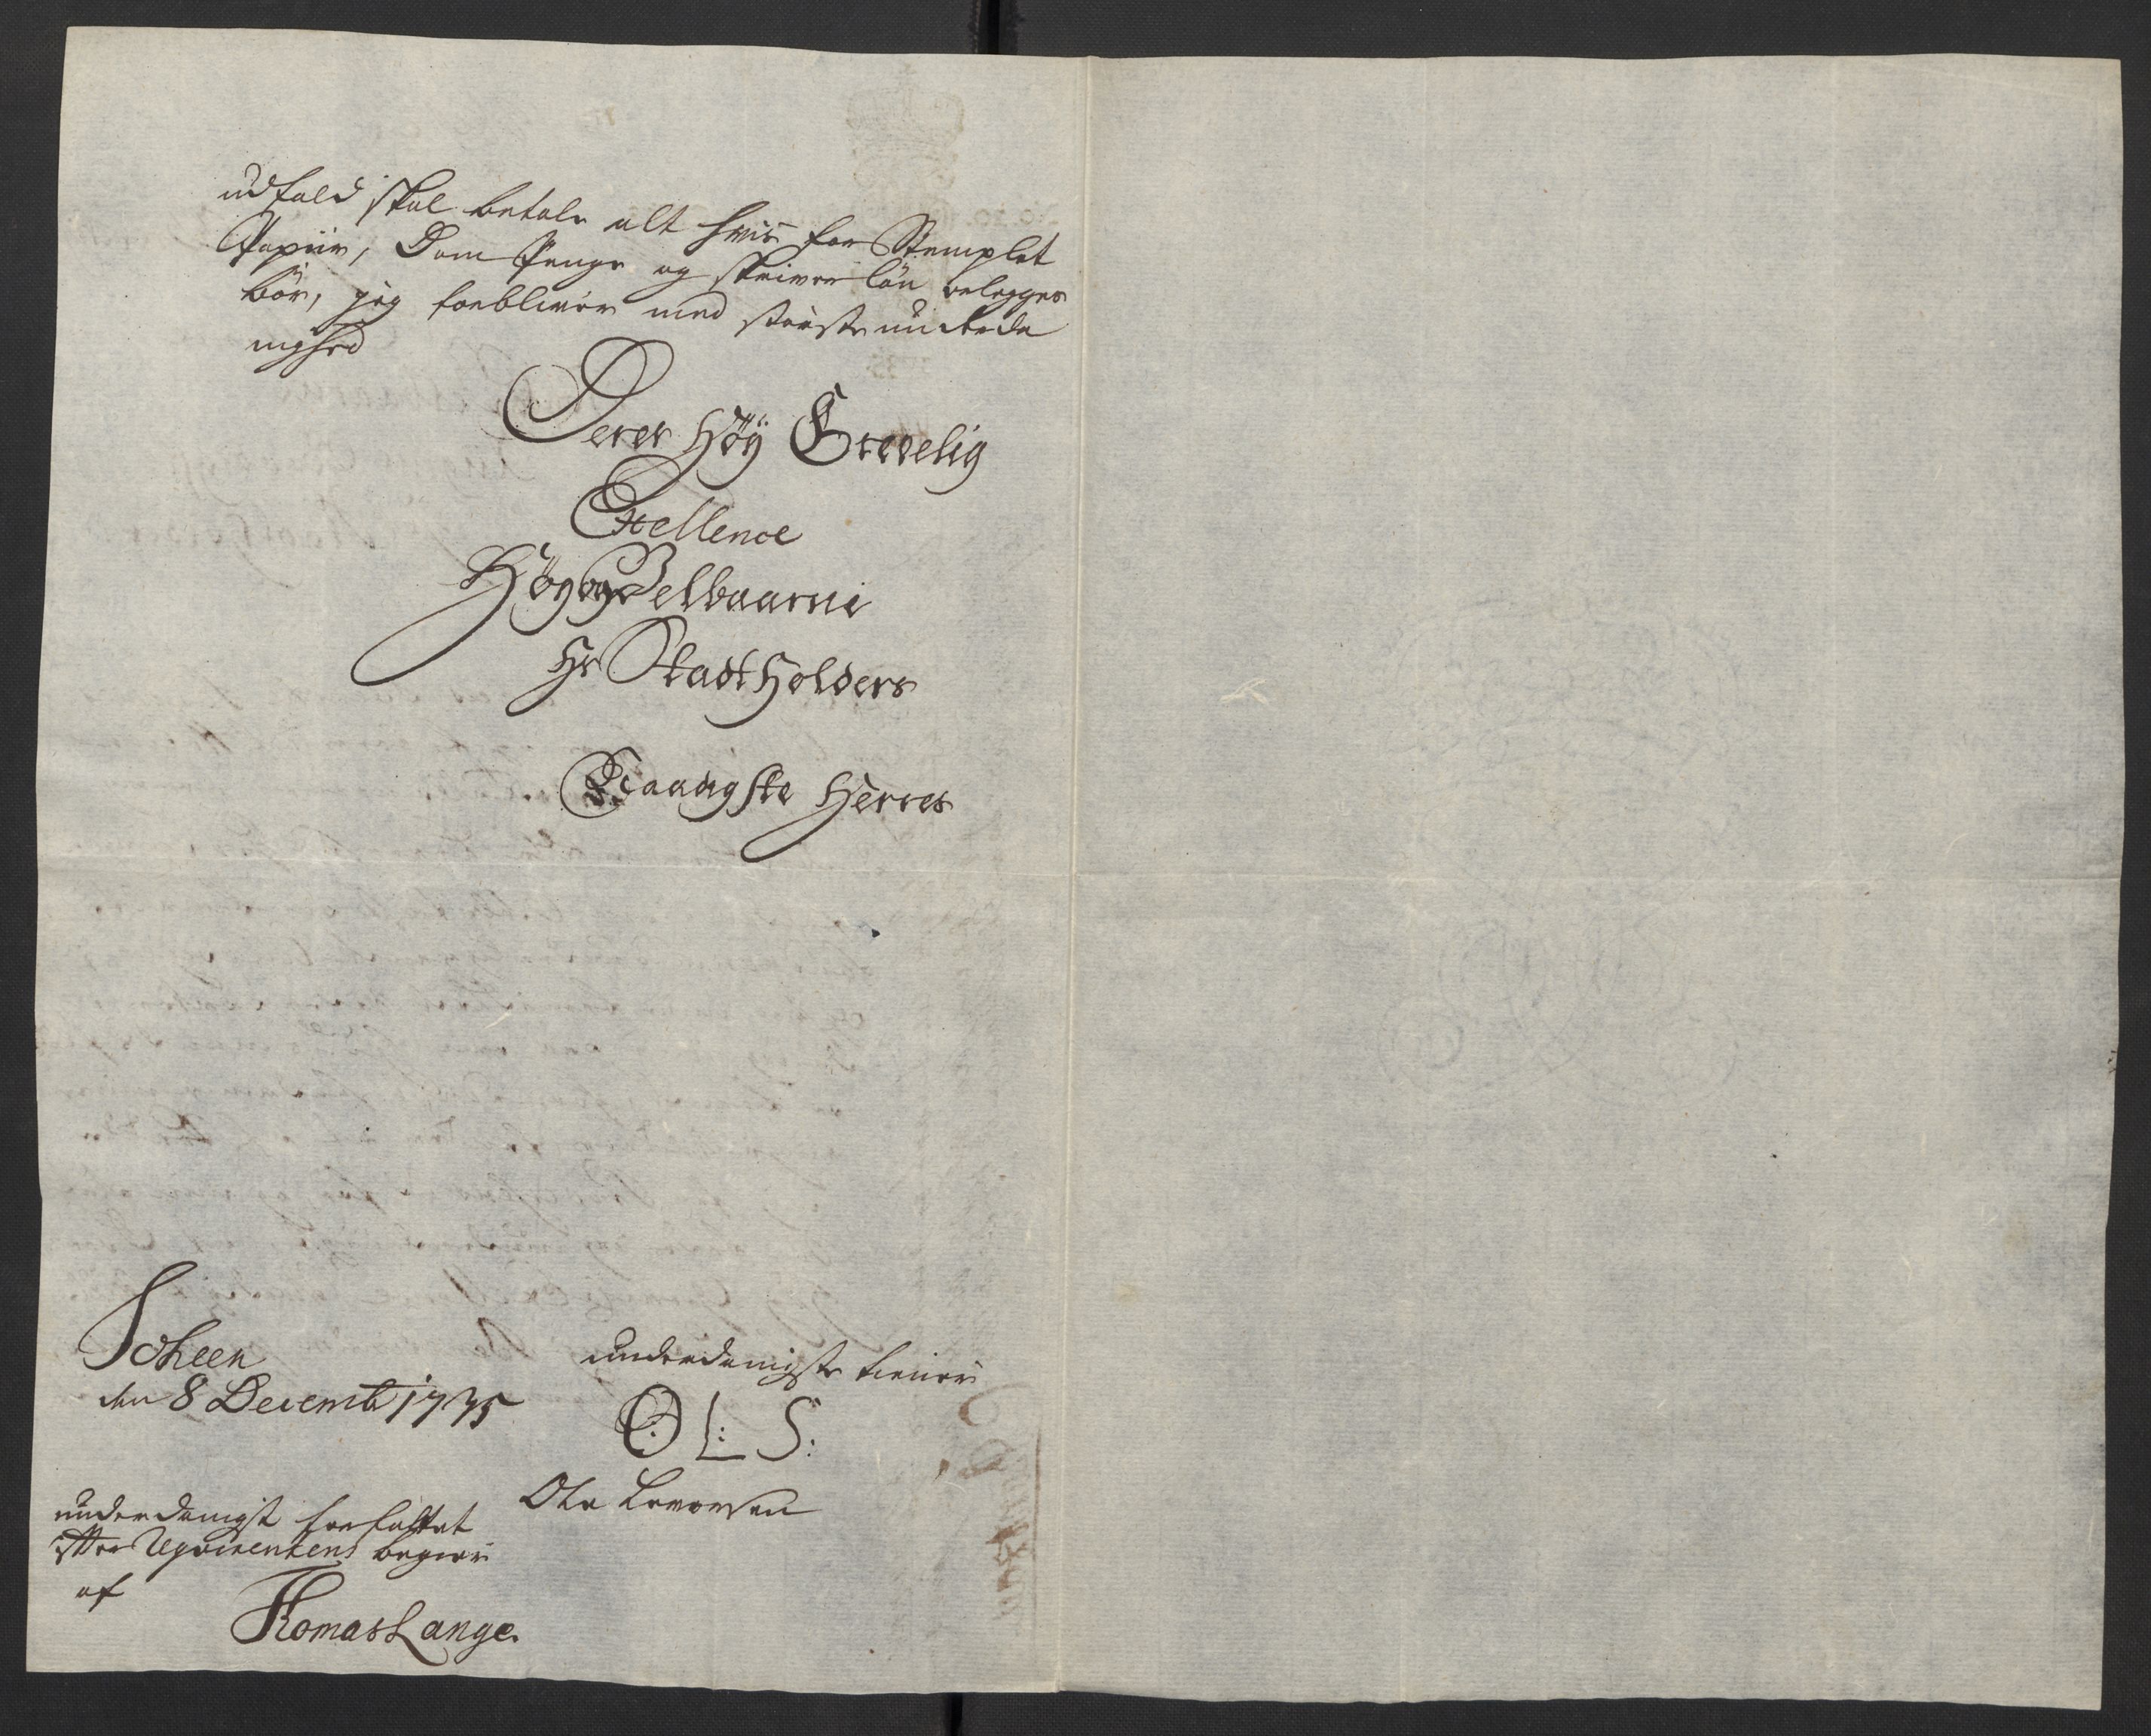 udfald skal betale alt hvis for Stemplet
Papiir, Dom Penge og skriver løn erlegges
bør, jeg forbliver med største underda
nighed
Deres Høy Grevelig
Excellence
Høy og Velbaarne
Hr Stadtholders
Naadigste Herres
Scheen
den 8 Decemb 1735
underdanigste tiener
O: L: S:
Ole Levorsen
underdanigst forfattet
efter Reqvirentens begier
af
Thomas Lange.